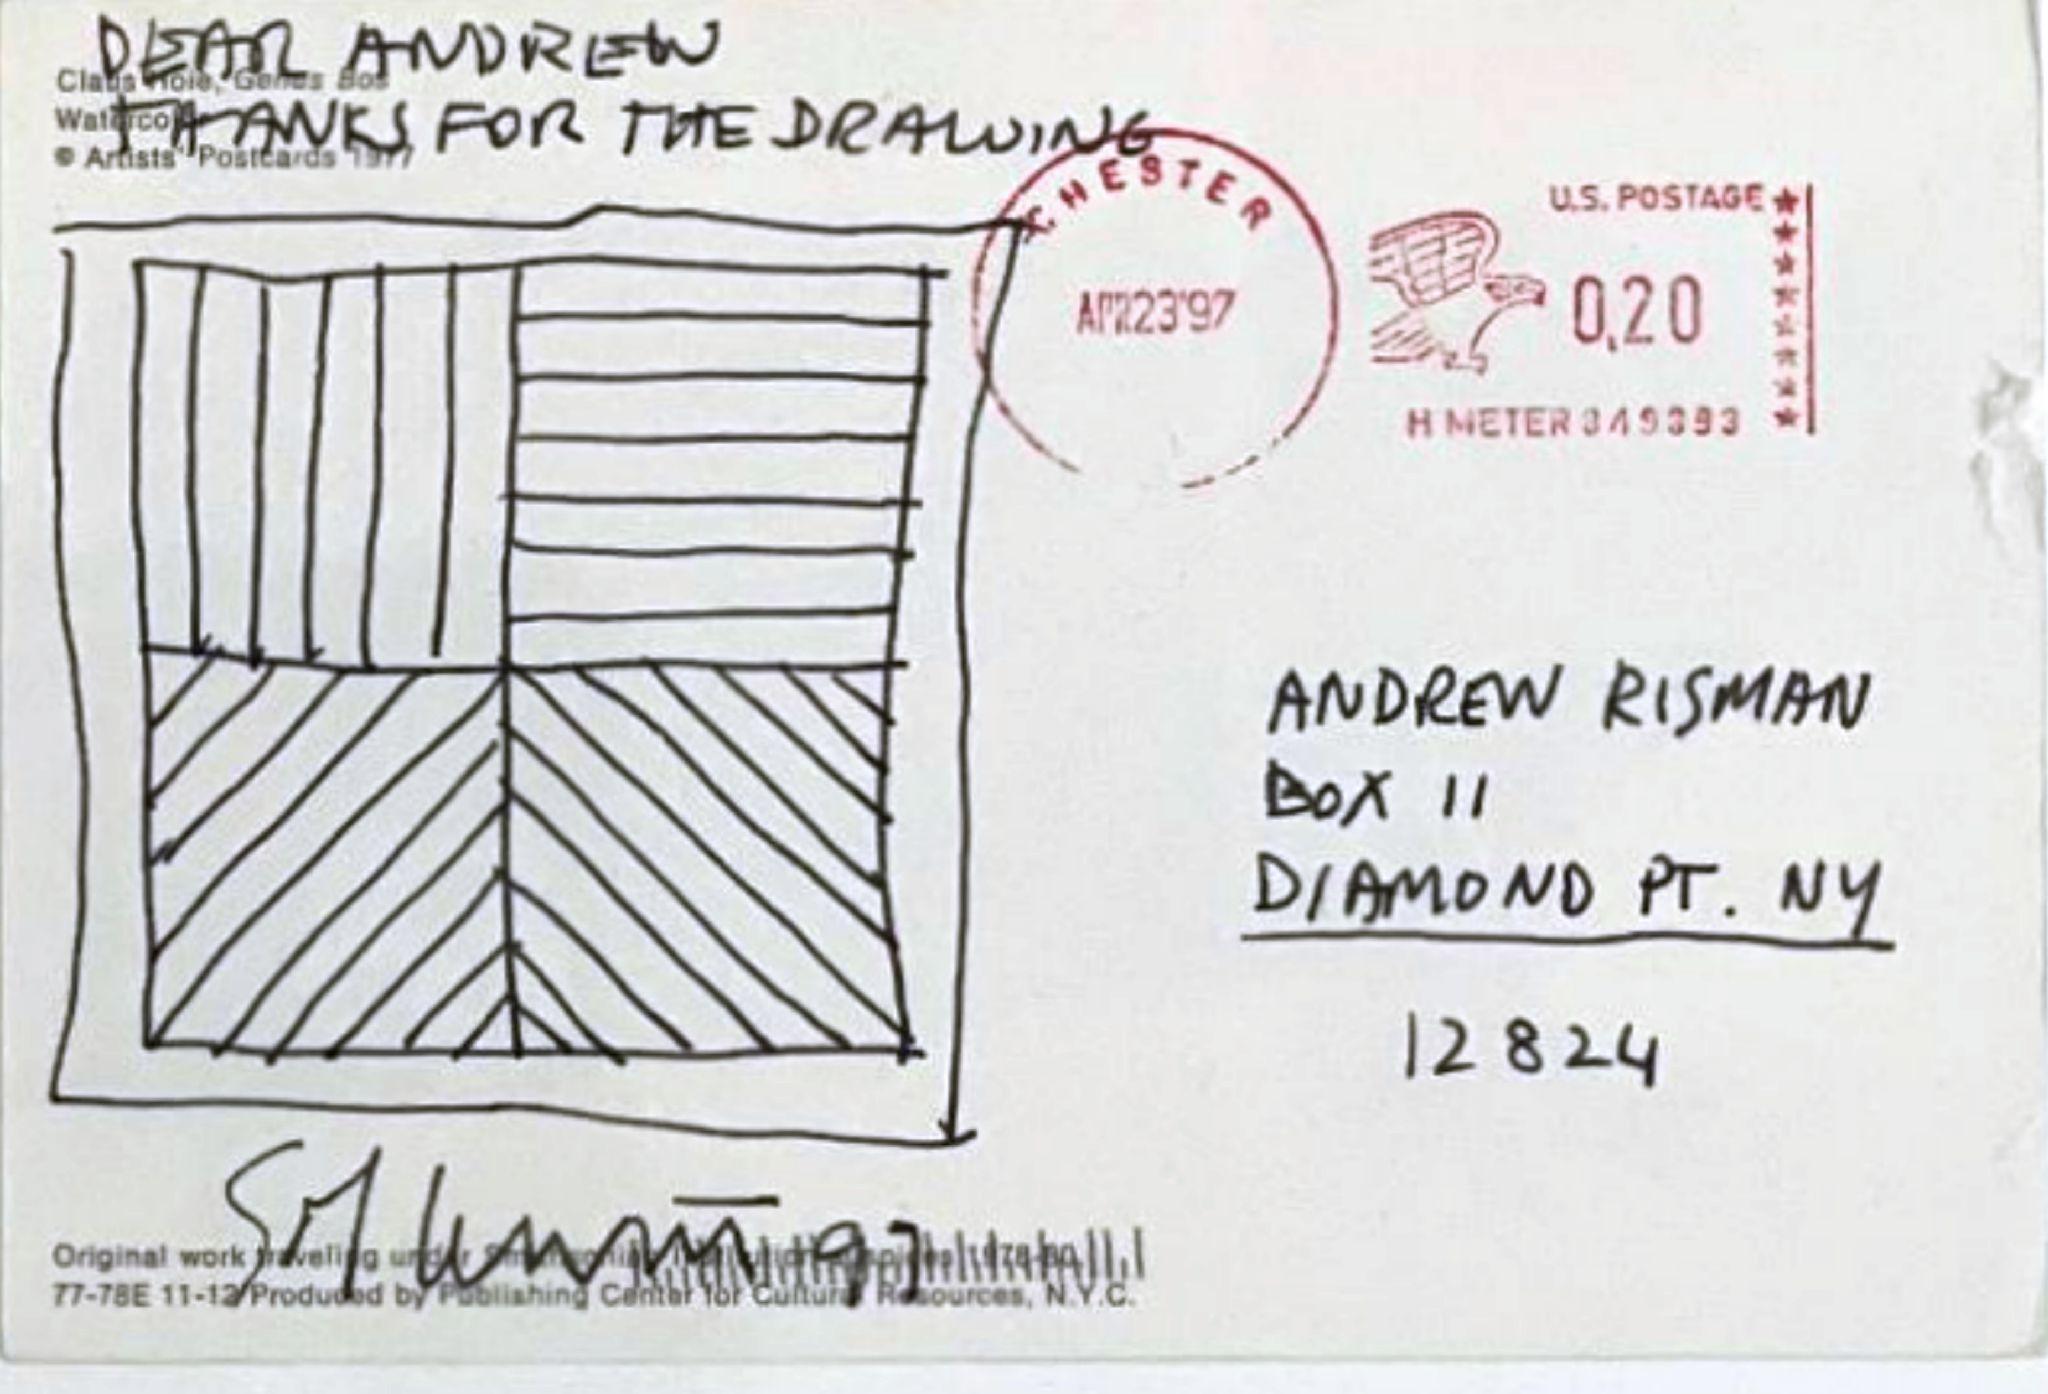 DEAR ANDREW
Claus Hoie, Genus Bos
THANKS FOR THE DRAWING
© Artists' Postcards 1977
CHESTER
APR23'97
U.S. POSTAGE
0.20
H METER 349393
ANDREW RISMAN
BOX 11
DIAMOND PT. NY
12824
Sol LeWitt 97
Original work traveling under Smithsonian Institution auspices 1978-80
77-78E 11-12 Produced by Publishing Center for Cultural Resources, N.Y.C.